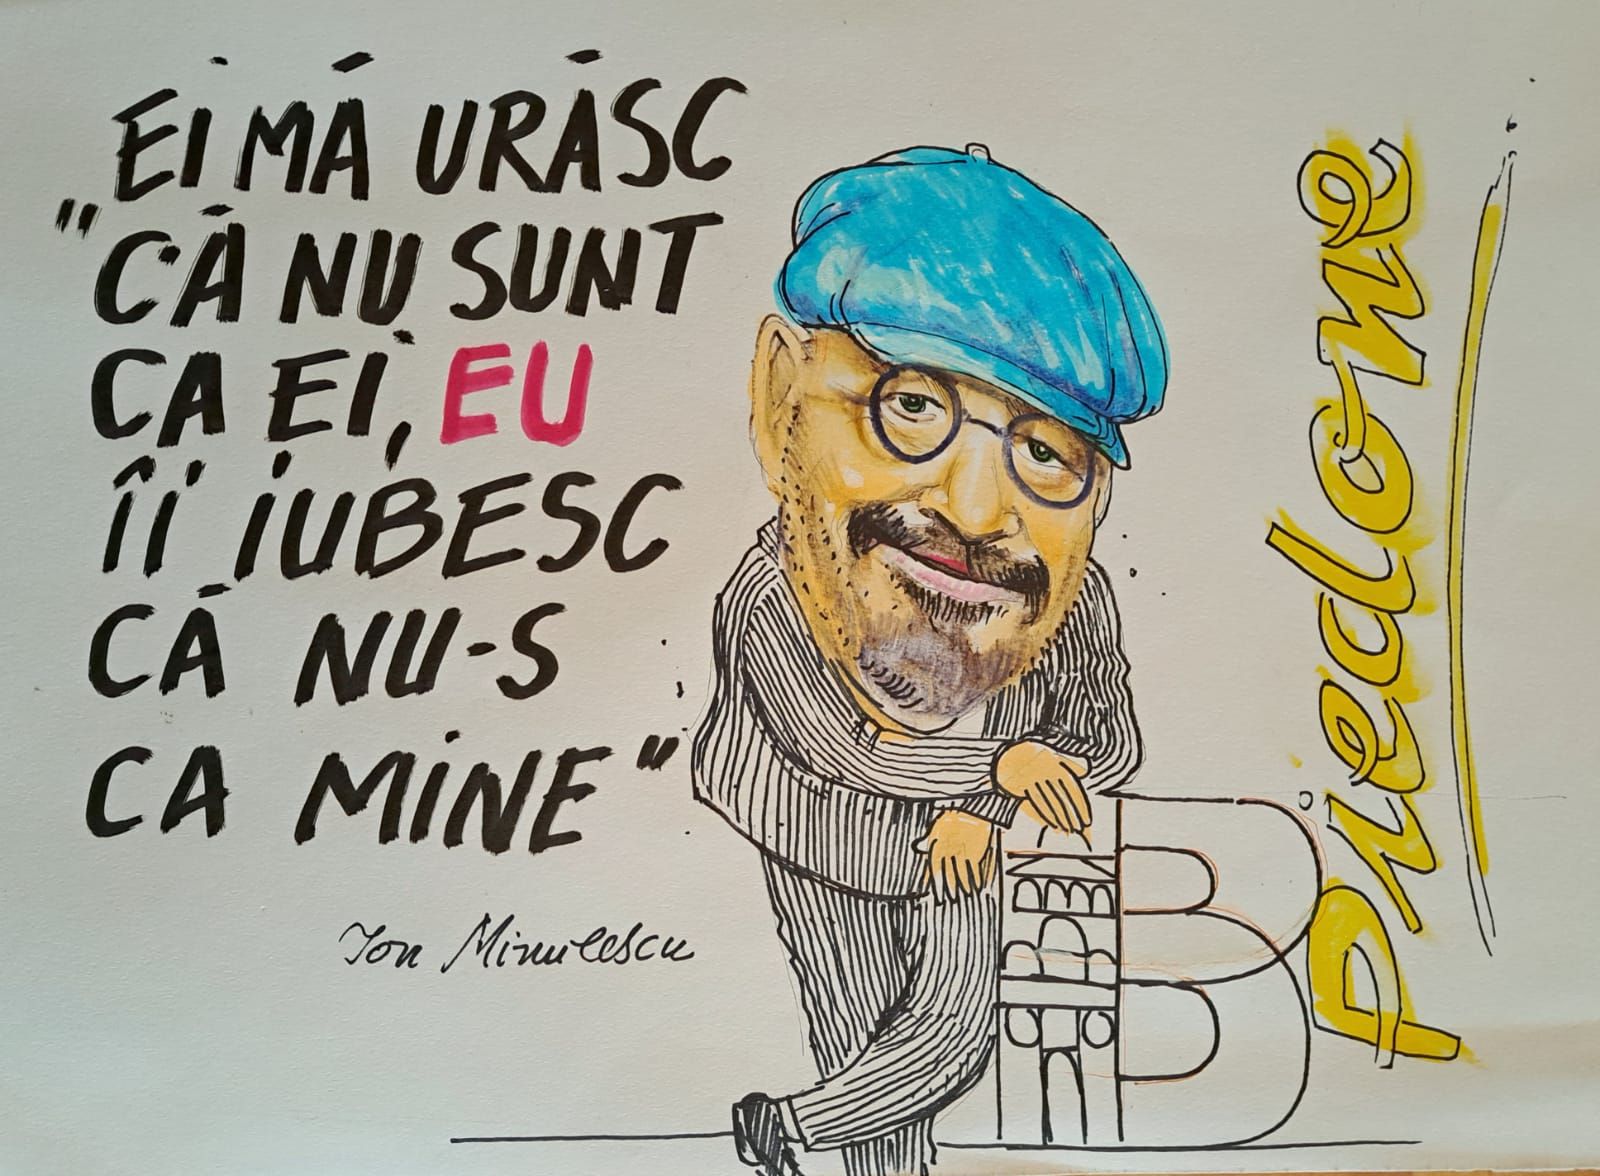 EI MĂ URĂSC
"CĂ NU SUNT
CA EI, EU
ÎI IUBESC
CĂ NU-S
CA MINE"
Ion Minulescu
Piedone
B